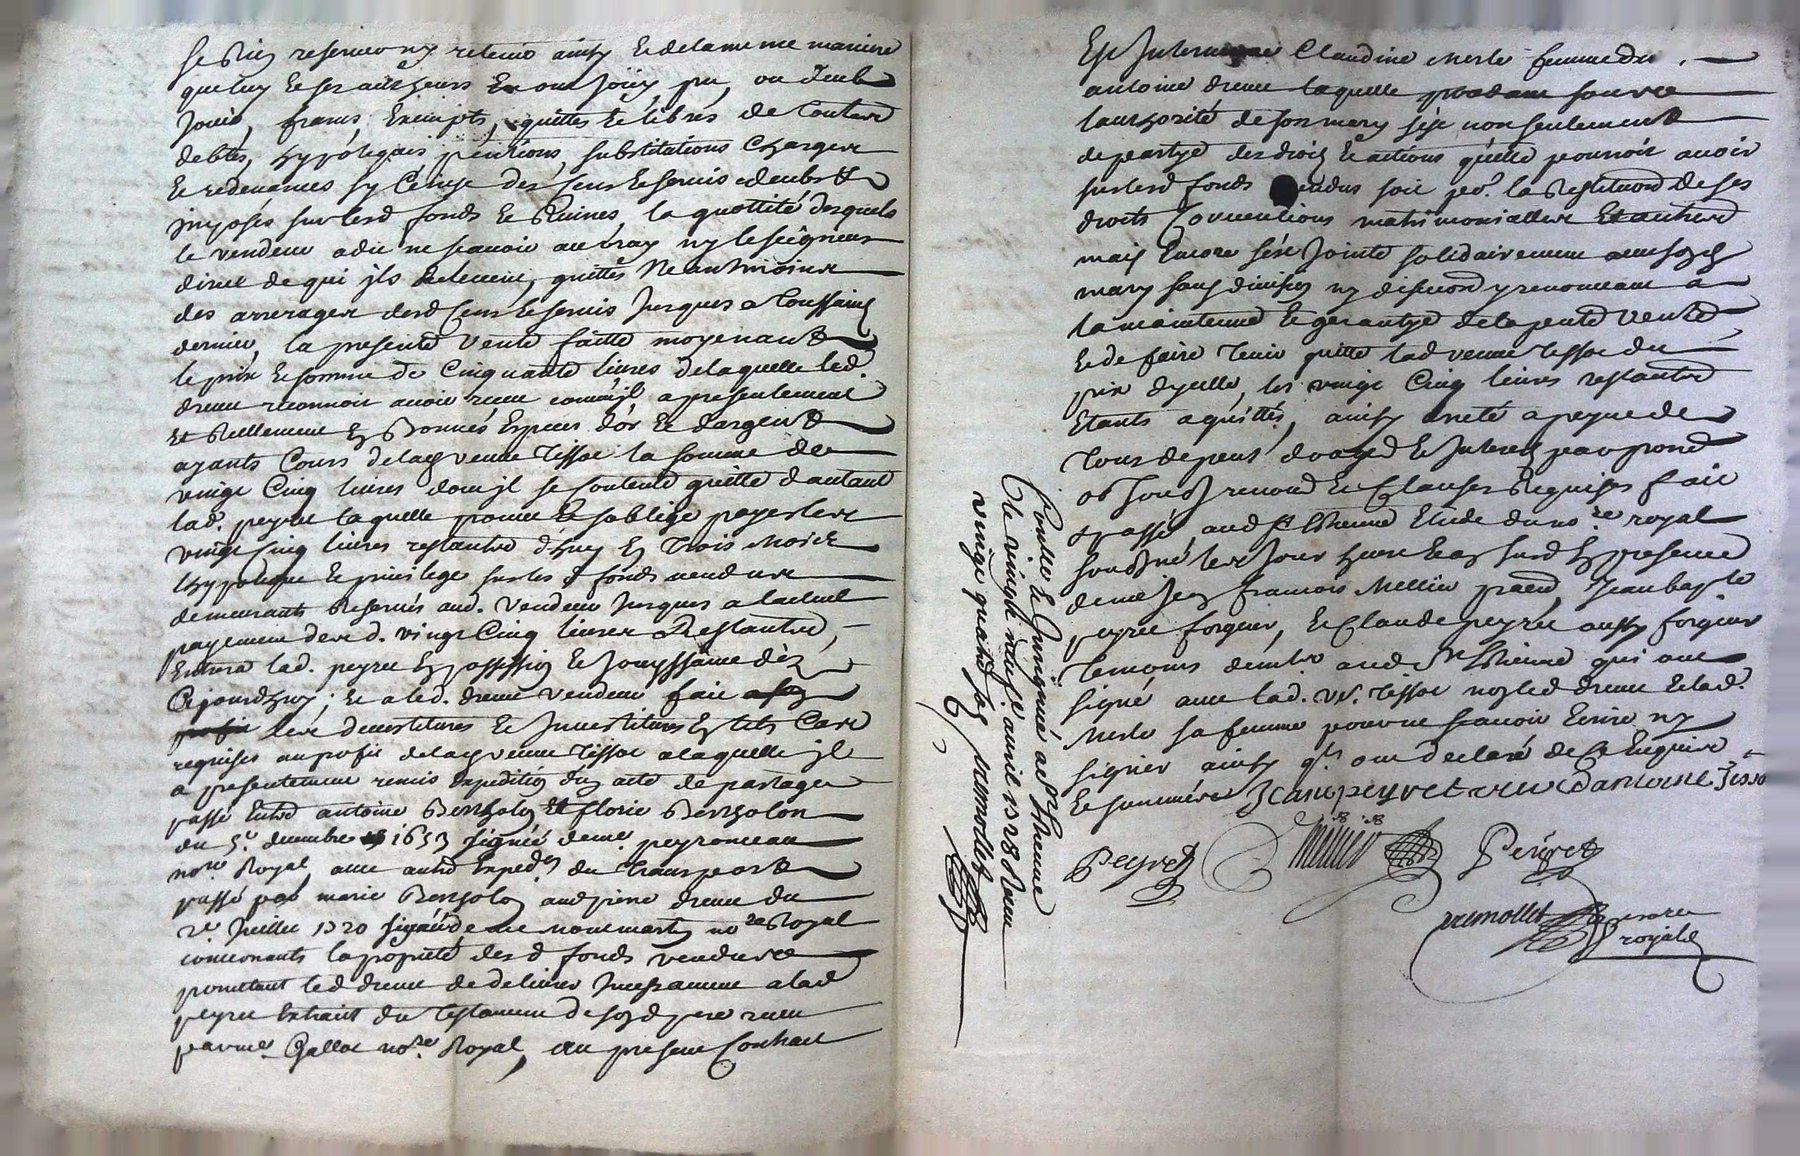 se Rien reserver ny retenir ainsy et de la mesme maniere
que luy et ses autheurs en ont jouy pu, ou deub
jouir, francs, Exempts, quittes et libres de toutes
debtes, hypoteques pentions, substitutions charges
et redevances sy ce n'est des cens et servis deubs et
imposés sur lesd fonds et Ruines, la quottité desquels
le vendeur a dit ne scavoir au vray ny le seigneur
direct de qui ils Relevent, quittes Neantmoins
des arrerages desd cens et servis jusques a toussaint
dernier, la presente vente faitte moyenant
le prix et somme de Cinquante livres de laquelle led.
dreue reconnoit avoir receu comm'il a presentement
et Réellement en Bonnes Especes d'or et d'argent
ayants Cours de lad veuve Tissot la somme de
vingt Cinq livres dont il se contente quitte d'autant
lad. peyret laquelle promet et s'oblige payer les
vingt Cinq livres restantes d'huy en trois mois
hypoteque et privilege sur les d fonds vendus
demeurants Reservés aud. vendeur jusques a l'actuel
payement desd. vingt Cinq livres Restantes,
Entrera lad. peyret en possession et jouyssance dez
Cejourdhuy; et a led. dreue vendeur fait
les devestitures et Investitures En tels Cas
requises au profit de lad veuve Tissot a laquelle il
a presentement remis expedition du acte de partage
passé Entre antoine Bertholon et florie Bertholon
du 5e decembre 1653 signé deme. peyronceau
nore Royal, avec autre Exped.on du transport
passé par marie Bertholon aud pierre dreue du
2e Juillet 1720 signé de me montmartin nore Royal
concernants la proprieté des d fonds vendus
promettant led dreue de delivrer Incessamment a lad
peyret Extrait du testament de sond pere receu
par me. Gallot nore. Royal, au present Contract
Est Intervenue Claudine merle femme du
antoine dreue laquelle soub
lauthorité de son mary s'est non seulement
departye des droits et actions quelle pourroit avoir
sur lesd fonds vendus soit pr. la Restitution de ses
droits Conventions matrimonialles et autres
mais Encore s'est jointe solidairement avec sond
mary sans division ny discution y renonceant a
la maintenue et garantye de la pente vente
et de faire tenir quitte lad veuve Tissot du
prix d'ycelle, les vingt Cinq livres restantes
Etants aquittés, ainsy areté a peyne de
tous depens domages et Interets par promes
ob soub renond et Clauses Requises fait
et passé aud st Etienne Etude du nore royal
soussigné les jour heure et an susd En presence
de me Jean francois Mellier praen, Jean bapte
peyret forgeur, et Claude peyret aussy forgeur
temoins demt audt St Etienne qui ont
signé avec lad. vve. Tissot nonled dreue et lad.
merle sa femme pour ne scavoir Ecrire ny
signer ainsy qls ont declaré de Ce Enquis
et sommés Jeanepeyret veu dantoine Tisso
Peyret Mellier Peyret
premollet notaire
royal
Conllé et Insinué a st Etienne
le vingt neuf avril 1728 Receu
vingt quatre sols premollet